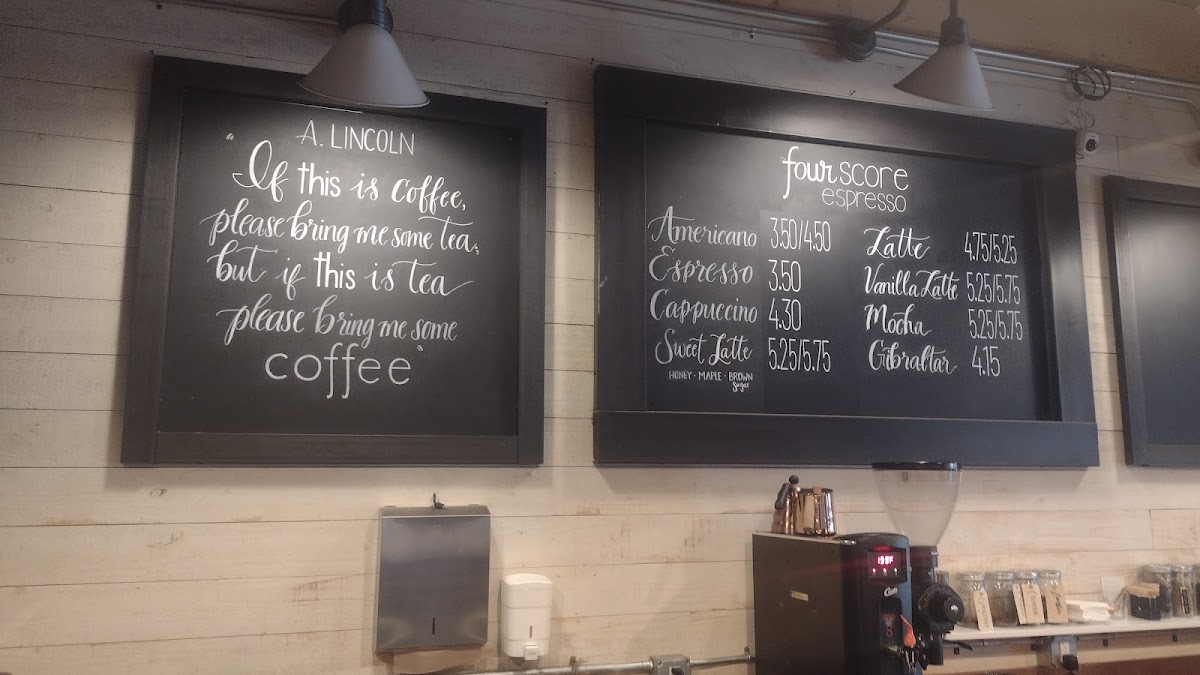 A. LINCOLN
"If this is coffee,
please bring me some tea;
but if this is tea
please bring me some
coffee"
four score
espresso
Americano 3.50/4.50
Espresso 3.50
Cappuccino 4.30
Sweet Latte 5.25/5.75
HONEY · MAPLE · BROWN
Sugar
Latte 4.75/5.25
Vanilla Latte 5.25/5.75
Mocha 5.25/5.75
Gibraltar 4.15
199F
Curtis